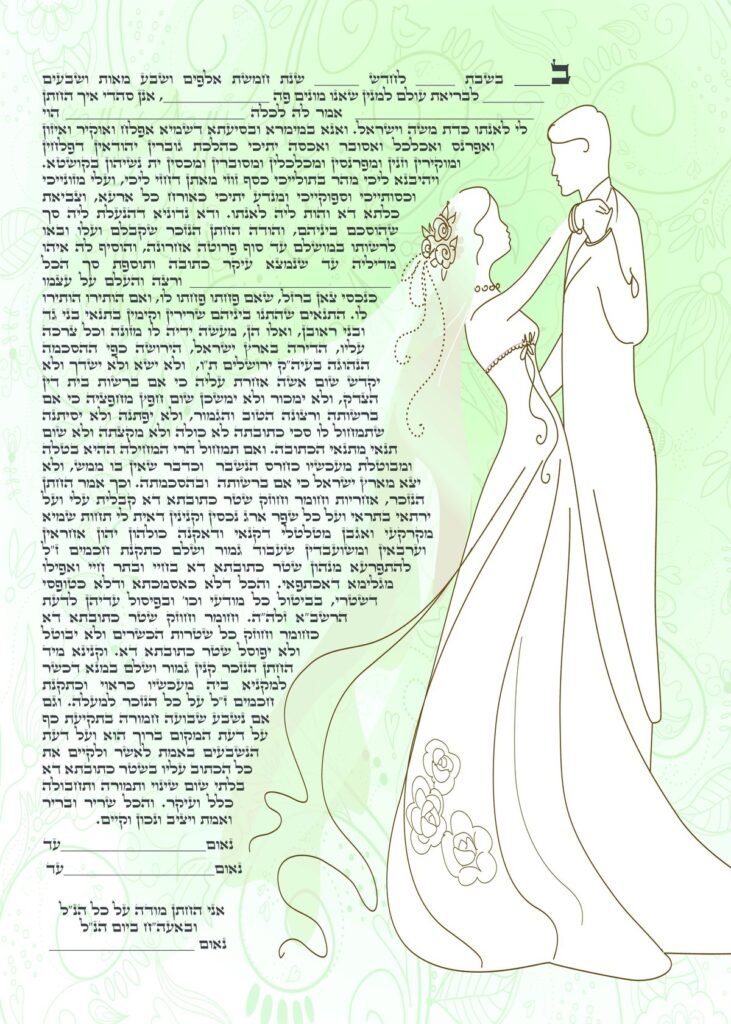 ב____ בשבת ______ לחדש ______ שנת חמשת אלפים ושבע מאות ושבעים
________ לבריאת עולם למנין שאנו מונים פה ____________, אנן סהדי איך החתן
____________________ אמר לה לכלה ____________________ הוי
לי לאנתו כדת משה וישראל. ואנא במימרא ובסיעתא דשמיא אפלח ואוקיר ואיזון
ואפרנס ואכלכל ואסובר ואכסה יתיכי כהלכת גוברין יהודאין דפלחין
ומוקירין וזנין ומפרנסין ומכלכלין ומסוברין ומכסין ית נשיהון בקושטא.
ויהיבנא ליכי מהר בתולייכי כסף זוזי מאתן דחזי ליכי, ועלי מזונייכי
וכסותייכי וספוקייכי ומנדע יתיכי כאורח כל ארעא, וצביאת
כלתא דא והות ליה לאנתו. ודא נדוניא דהנעלת ליה סך
שהוסכם ביניהם, והודה החתן הנזכר שקבלם ועלו ובאו
לרשותו במושלם עד סוף פרוטה אחרונה, והוסיף לה איהו
מדיליה עד שנמצא עיקר כתובה ותוספת סך הכל
____________________ ורצה והעלם על עצמו
כנכסי צאן ברזל, שאם פחתו פחתו לו, ואם הותירו הותירו
לו. התנאים שהתנו ביניהם שרירין וקימין בתנאי בני גד
ובני ראובן, ואלו הן, מעשה ידיה לו מזונה וכל צרכה
עליו, הדירה בארץ ישראל, הירושה כפי ההסכמה
הנהוגה בעיה״ק ירושלים ת״ו, ולא ישא ולא ישדך ולא
יקדש שום אשה אחרת עליה כי אם ברשות בית דין
הצדק, ולא ימכור ולא ימשכן שום חפץ מחפציה כי אם
ברשותה ורצונה הטוב והגמור, ולא יפתנה ולא יסיתנה
שתמחול לו סכי כתובתה לא כולה ולא מקצתה ולא שום
תנאי מתנאי הכתובה. ואם תמחול הרי המחילה ההיא בטלה
ומבוטלת מעכשיו כחרס הנשבר וכדבר שאין בו ממש, ולא
יצא מארץ ישראל כי אם ברשותה ובהסכמתה. וכך אמר החתן
הנזכר, אחריות וחומר וחוזק שטר כתובתא דא קבלית עלי ועל
ירתאי בתראי ועל כל שפר ארג נכסין וקנינין דאית לי תחות שמיא
מקרקעי ואגבן מטלטלי דקנאי ודאקנה כולהון יהון אחראין
וערבאין ומשועבדין שעבוד גמור ושלם כתקנת חכמים ז״ל
להתפרעא מנהון שטר כתובתא דא בחיי ובתר חיי ואפילו
מגלימא דאכתפאי. והכל דלא כאסמכתא ודלא כטופסי
דשטרי, בביטול כל מודעי וכו׳ ובפיסול עדיהן לדעת
הרשב״א זלה״ה. וחומר וחוזק שטר כתובתא דא
כחומר וחוזק כל שטרות הכשרים ולא יבוטל
ולא יפוסל שטר כתובתא דא. וקנינא מיד
החתן הנזכר קנין גמור ושלם במנא דכשר
למקניא ביה מעכשיו כראוי וכתקנת
חכמים ז״ל על כל הנזכר למעלה. וגם
אם נשבע שבועה חמורה בתקיעת כף
על דעת המקום ברוך הוא ועל דעת
הנשבעים באמת לאשר ולקיים את
כל הכתוב עליו בשטר כתובתא דא
בלתי שום שינוי ותמורה ותחבולה
כלל ועיקר. והכל שריר ובריר
ואמת ויציב ונכון וקיים.
נאום____________________עד
נאום____________________עד
אני החתן מודה על כל הנ״ל
ובאעה״ח ביום הנ״ל
נאום ____________________